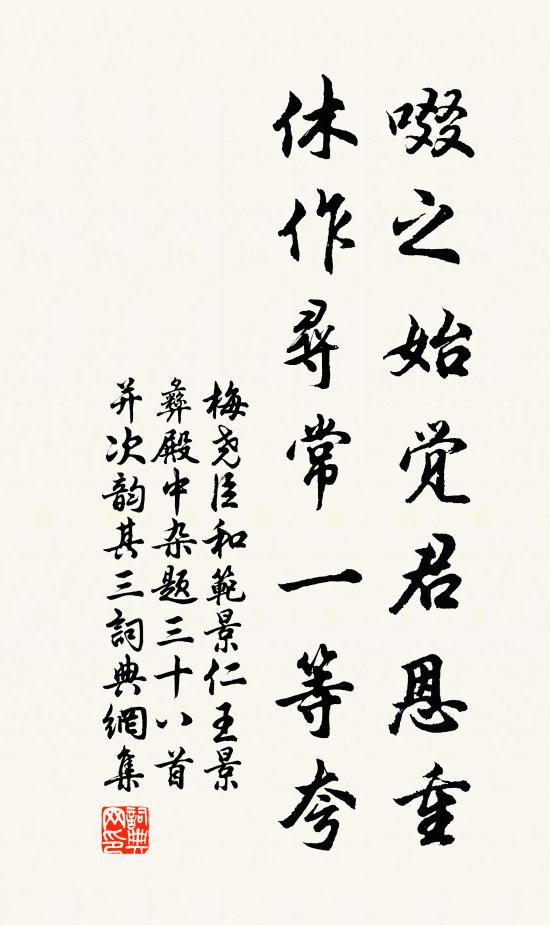 啜之始觉君恩重
休作尋常一等夸
梅尧臣和範景仁王景
彝殿中杂题三十八首
并次韵其三詞典網集
詞典
网印